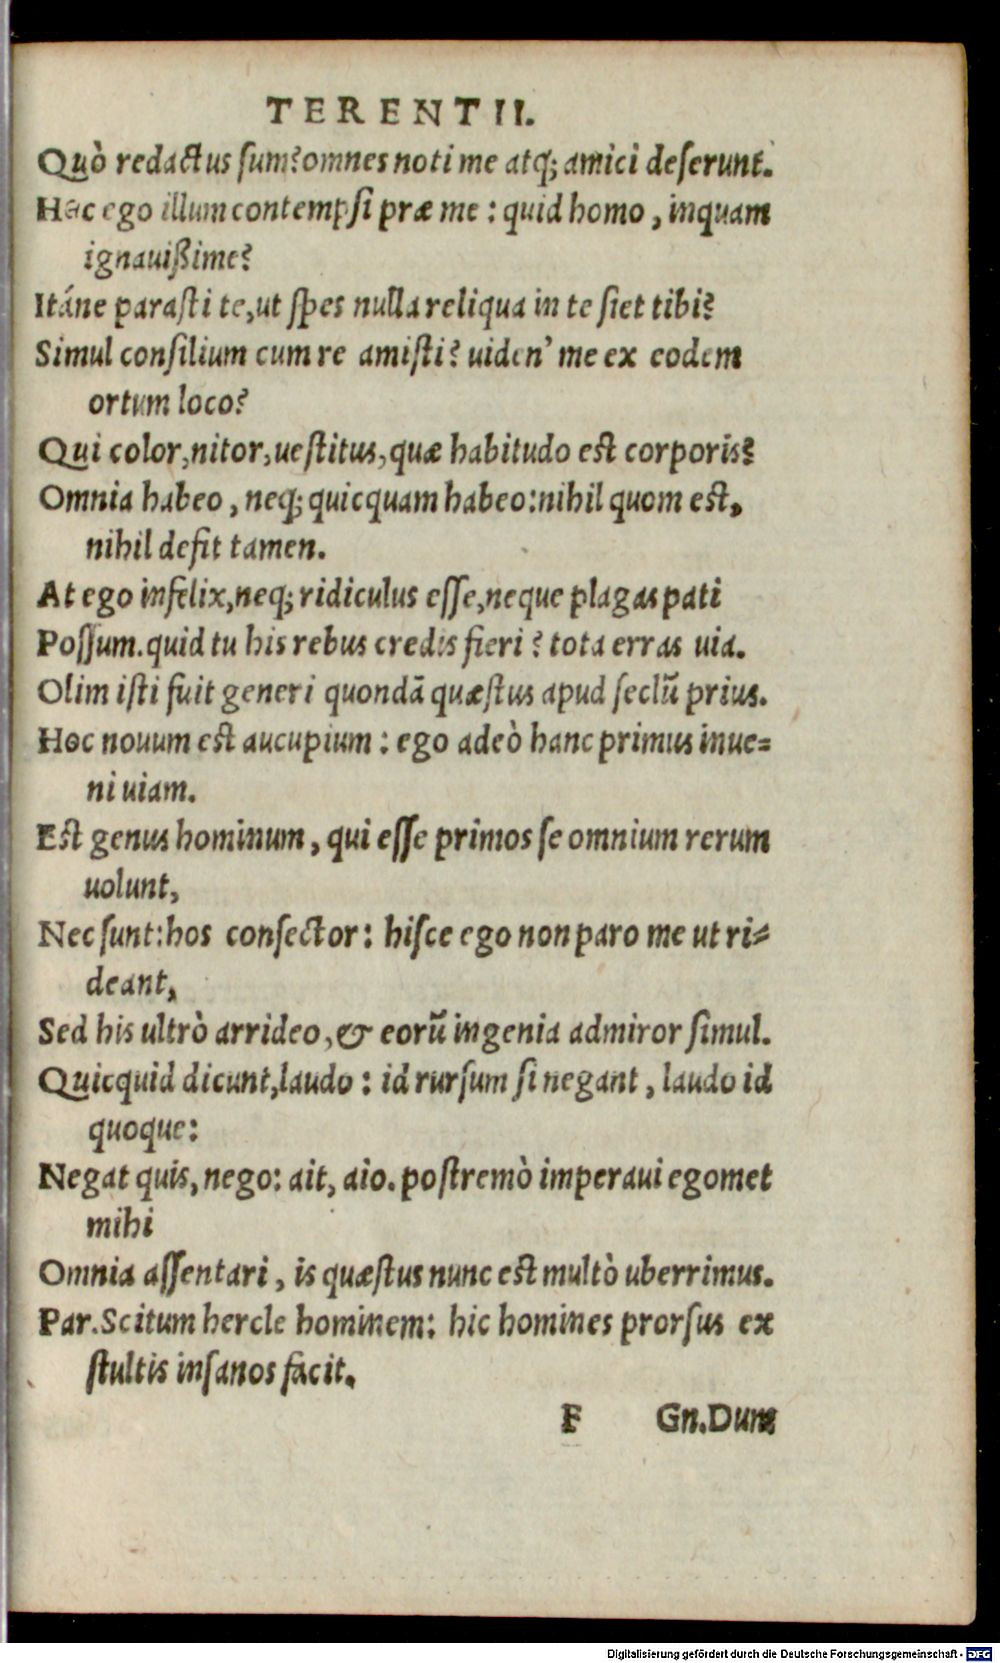 TERENTII.
Quò redactus sum?omnes noti me atq; amici deserunt.
Hoc ego illum contempsi præ me : quid homo , inquam
ignauißime?
Itáne parasti te,ut spes nulla reliqua in te siet tibi?
Simul consilium cum re amisti? uiden' me ex eodem
ortum loco?
Qui color,nitor,uestitus,quæ habitudo est corporis?
Omnia habeo , neq; quicquam habeo:nihil quom est,
nihil defit tamen.
At ego infelix,neq; ridiculus esse,neque plagas pati
Possum.quid tu his rebus credis fieri ? tota erras uia.
Olim isti fuit generi quondā quæstus apud seclū prius.
Hoc nouum est aucupium : ego adeò hanc primus inue=
ni uiam.
Est genus hominum , qui esse primos se omnium rerum
uolunt,
Nec sunt:hos consector: hisce ego non paro me ut ri=
deant,
Sed his ultrò arrideo,& eorū ingenia admiror simul.
Quicquid dicunt,laudo : id rursum si negant , laudo id
quoque:
Negat quis, nego: ait, aio. postremò imperaui egomet
mihi
Omnia assentari , is quæstus nunc est multò uberrimus.
Par.Scitum hercle hominem: hic homines prorsus ex
stultis insanos facit.
F Gn.Dum
Digitalisierung gefördert durch die Deutsche Forschungsgemeinschaft - DFG